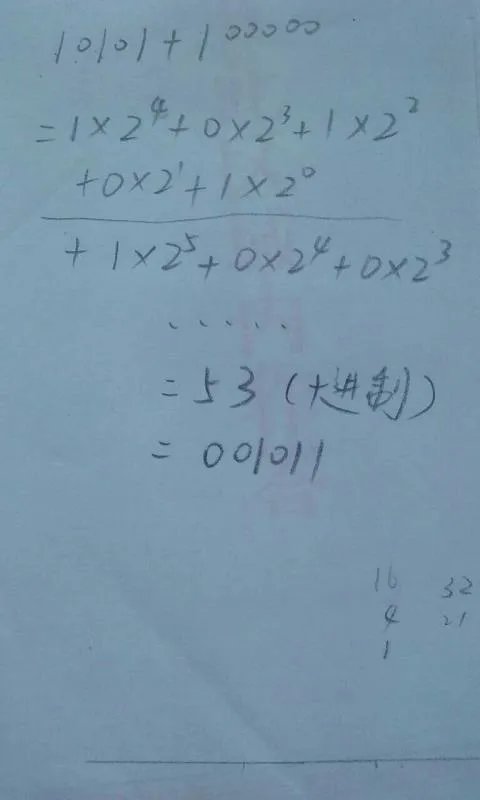 10101+100000
=1×2⁴+0×2³+1×2²
+0×2¹+1×2⁰
+1×2⁵+0×2⁴+0×2³
......
=53(十进制)
=001011
16 32
4 21
1